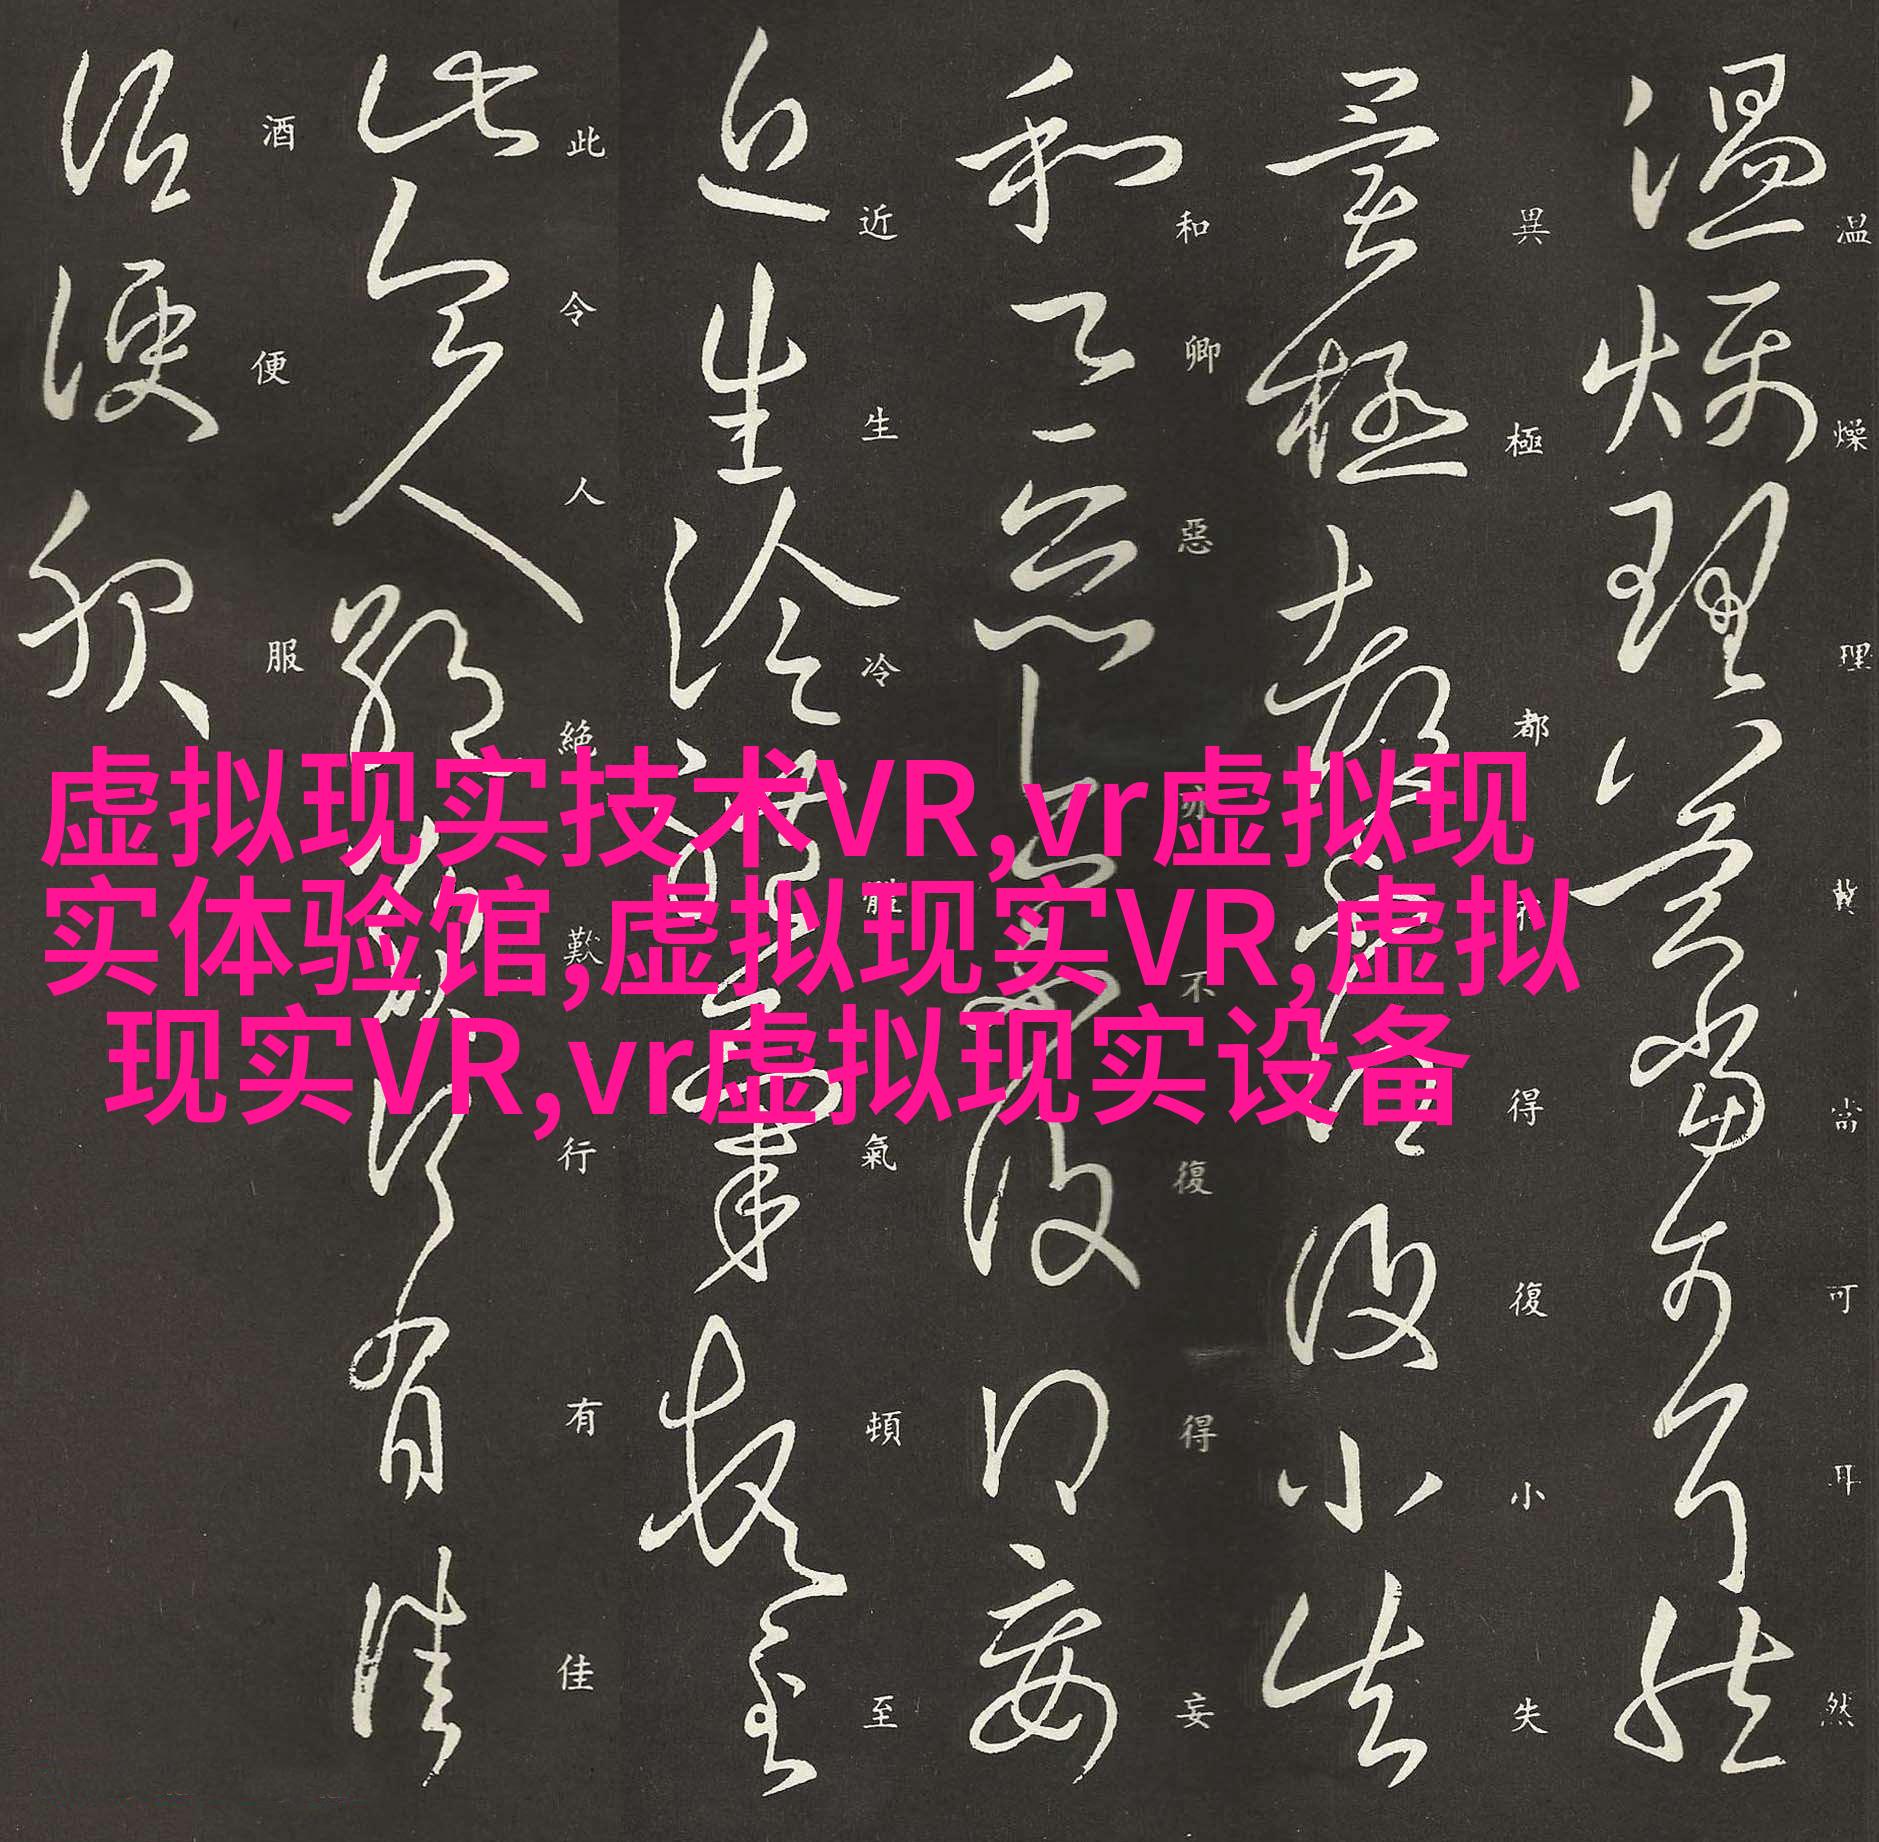 虚拟现实技术VR,vr虚拟现
实体验馆,虚拟现实VR,虚拟
现实VR,vr虚拟现实设备
温燥理冀當可耳然
異極都得復小失
和卿惡亦不復得妄
近生冷體氣頓至
此令人絶歎行有佳
酒便服